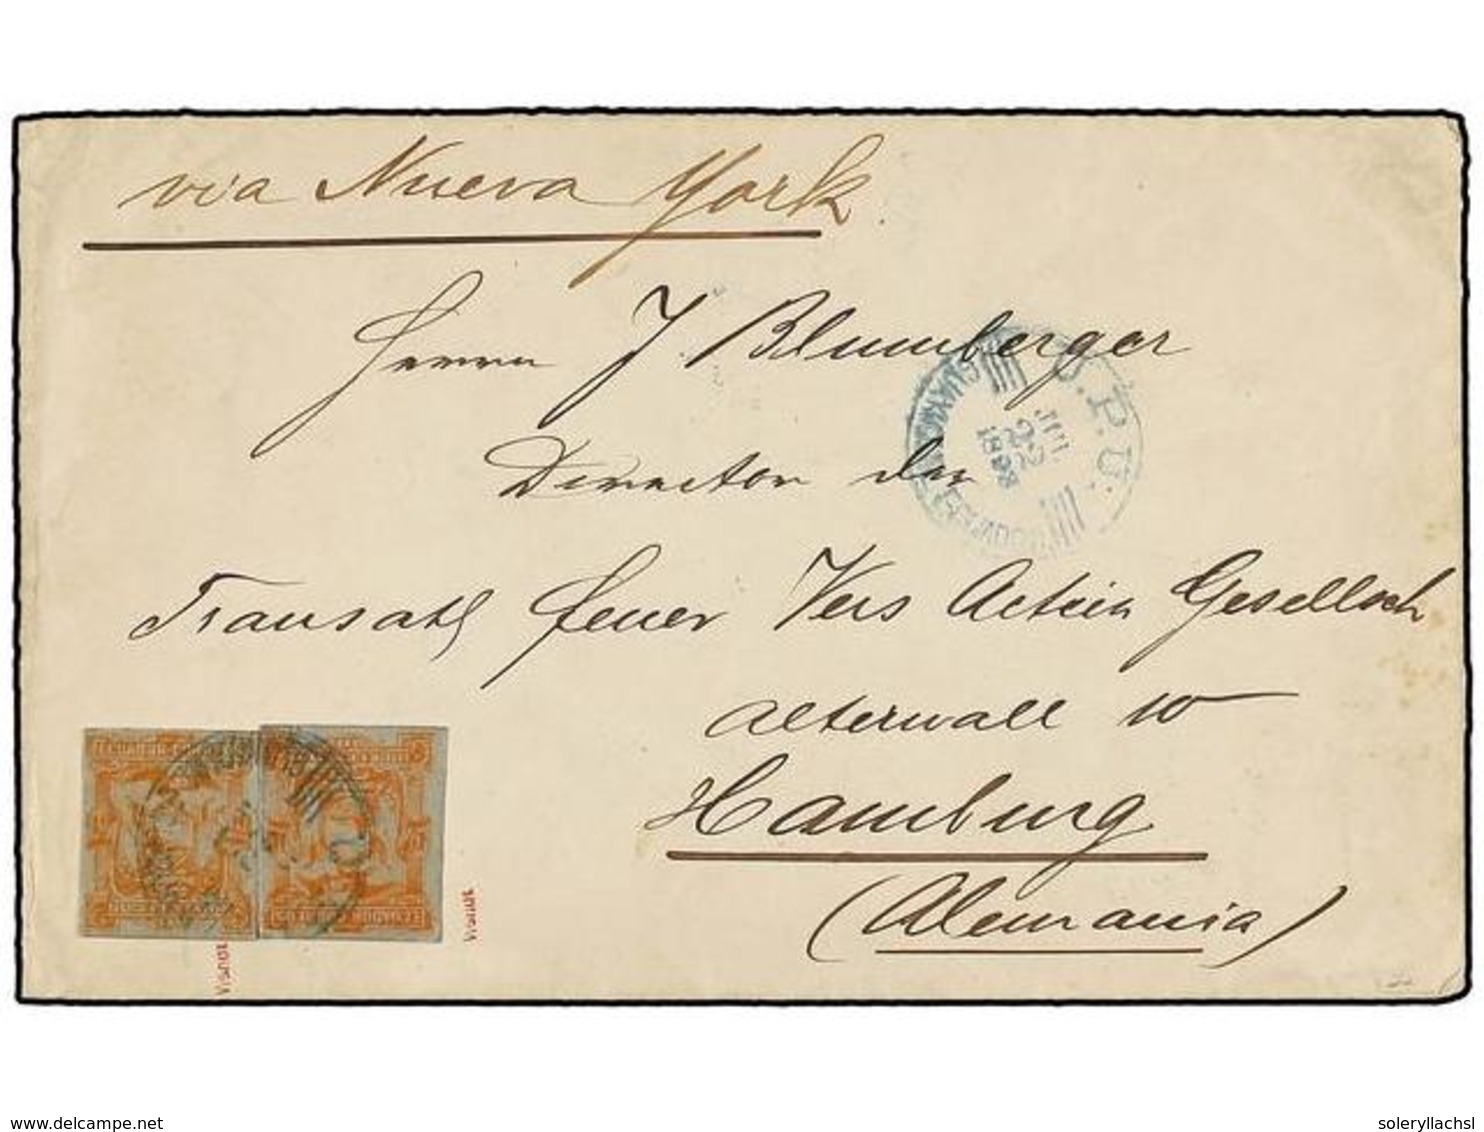 via Nueva York
Herrn J. Blumberger
Director der
Transatl feuer Vers Actien Gesellsch
alterwall 10
Hamburg
(Alemania)
U.P.U.
JUL
22
ECUADOR
ECUADOR
delcampe.net
soleryllachsl